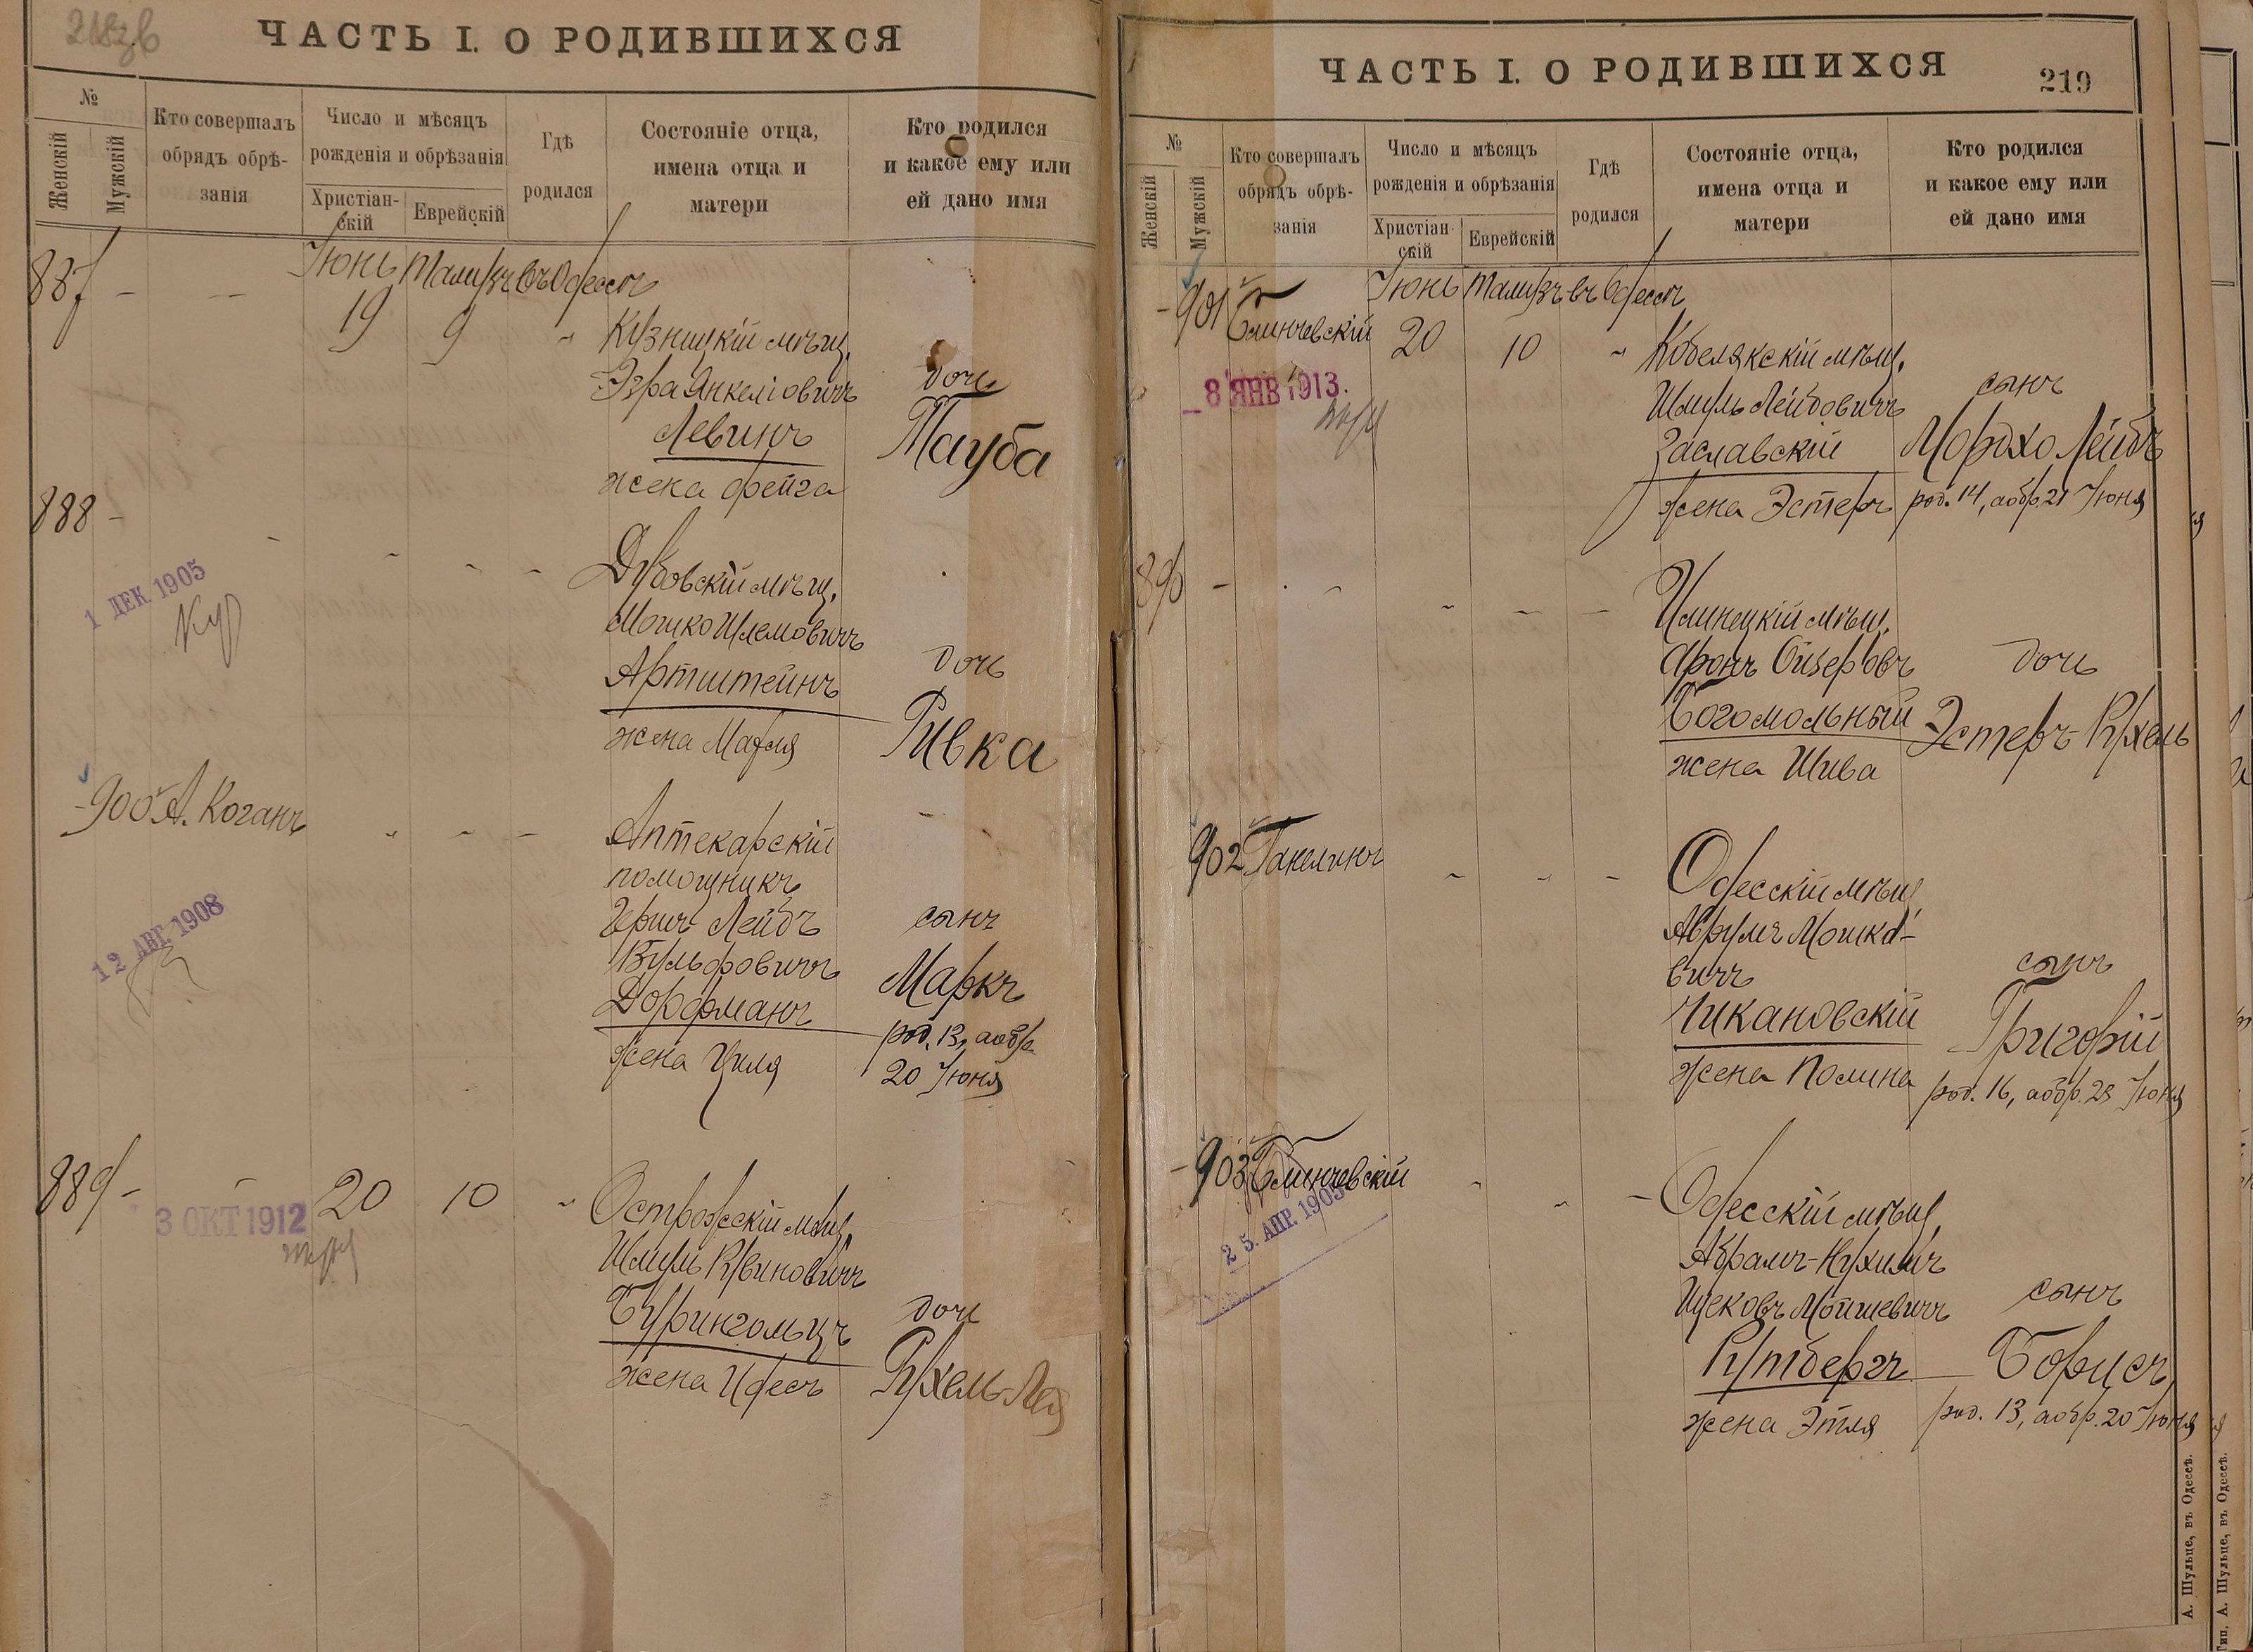 ЧАСТЬ I. О РОДИВШИХСЯ
№
Женскій
Мужскій
Кто совершалъ
обрядъ обрѣ-
занія
Число и мѣсяцъ
рожденія и обрѣзанія
Христіан-
скій
Еврейскій
Гдѣ
родился
Состояніе отца,
имена отца и
матери
Кто родился
и какое ему или
ей дано имя
887 - - Іюнь Тамузъ въ Одессѣ
19 9 " Кузницкій мѣщ.
Эзра Янкеліовичъ
Левинъ
жена Фейга
дочь
Тауба
888 -
1 ДЕК. 1905
Дубовскій мѣщ.
Мошко Шлемовичъ
Артштейнъ
жена Маріля
дочь
Ривка
- 900 А. Коганъ
12 АВГ. 1908
Аптекарскій
помощникъ
Гершъ Лейбъ
Вульфовичъ
Дорфманъ
жена Циля
сынъ
Маркъ
род. 13, а обр.
20 Іюня
889 - - 20 10 "
3 ОКТ 1912
Острожскій мѣщ.
Шмуль Рувиновичъ
Бурингольцъ
жена Идесъ
дочь
Рухель-Лея
ЧАСТЬ I. О РОДИВШИХСЯ
219
№
Женскій
Мужскій
Кто совершалъ
обрядъ обрѣ-
занія
Число и мѣсяцъ
рожденія и обрѣзанія
Христіан-
скій
Еврейскій
Гдѣ
родился
Состояніе отца,
имена отца и
матери
Кто родился
и какое ему или
ей дано имя
- 901 Блинчевскій Іюнь Тамузъ въ Одессѣ
20 10 " Кобелякскій мѣщ.
8 ЯНВ 1913.
Шмуль Лейбовичъ
Заславскій
жена Эстеръ
сынъ
Мордхо Лейбъ
род. 14, а обр. 21 Іюня
890 -
Илинецкій мѣщ.
Аронъ Ойзеровъ
Богомольный
жена Шива
дочь
Эстеръ-Рухель
902
Одесскій мѣщ.
Аврумъ Мошко-
вичъ
Чикановскій
жена Полина
сынъ
Григорій
род. 16, а обр. 23 Іюня
- 903 Блинчевскій
25. АПР. 1905
Одесскій мѣщ.
Абрамъ-Нухимъ
Ицковъ Мойшевичъ
Рутбергъ
жена Этля
сынъ
Борисъ
род. 13, а обр. 20 Іюня
А. Шульце, въ Одессѣ.
Тип. А. Шульце, въ Одессѣ.